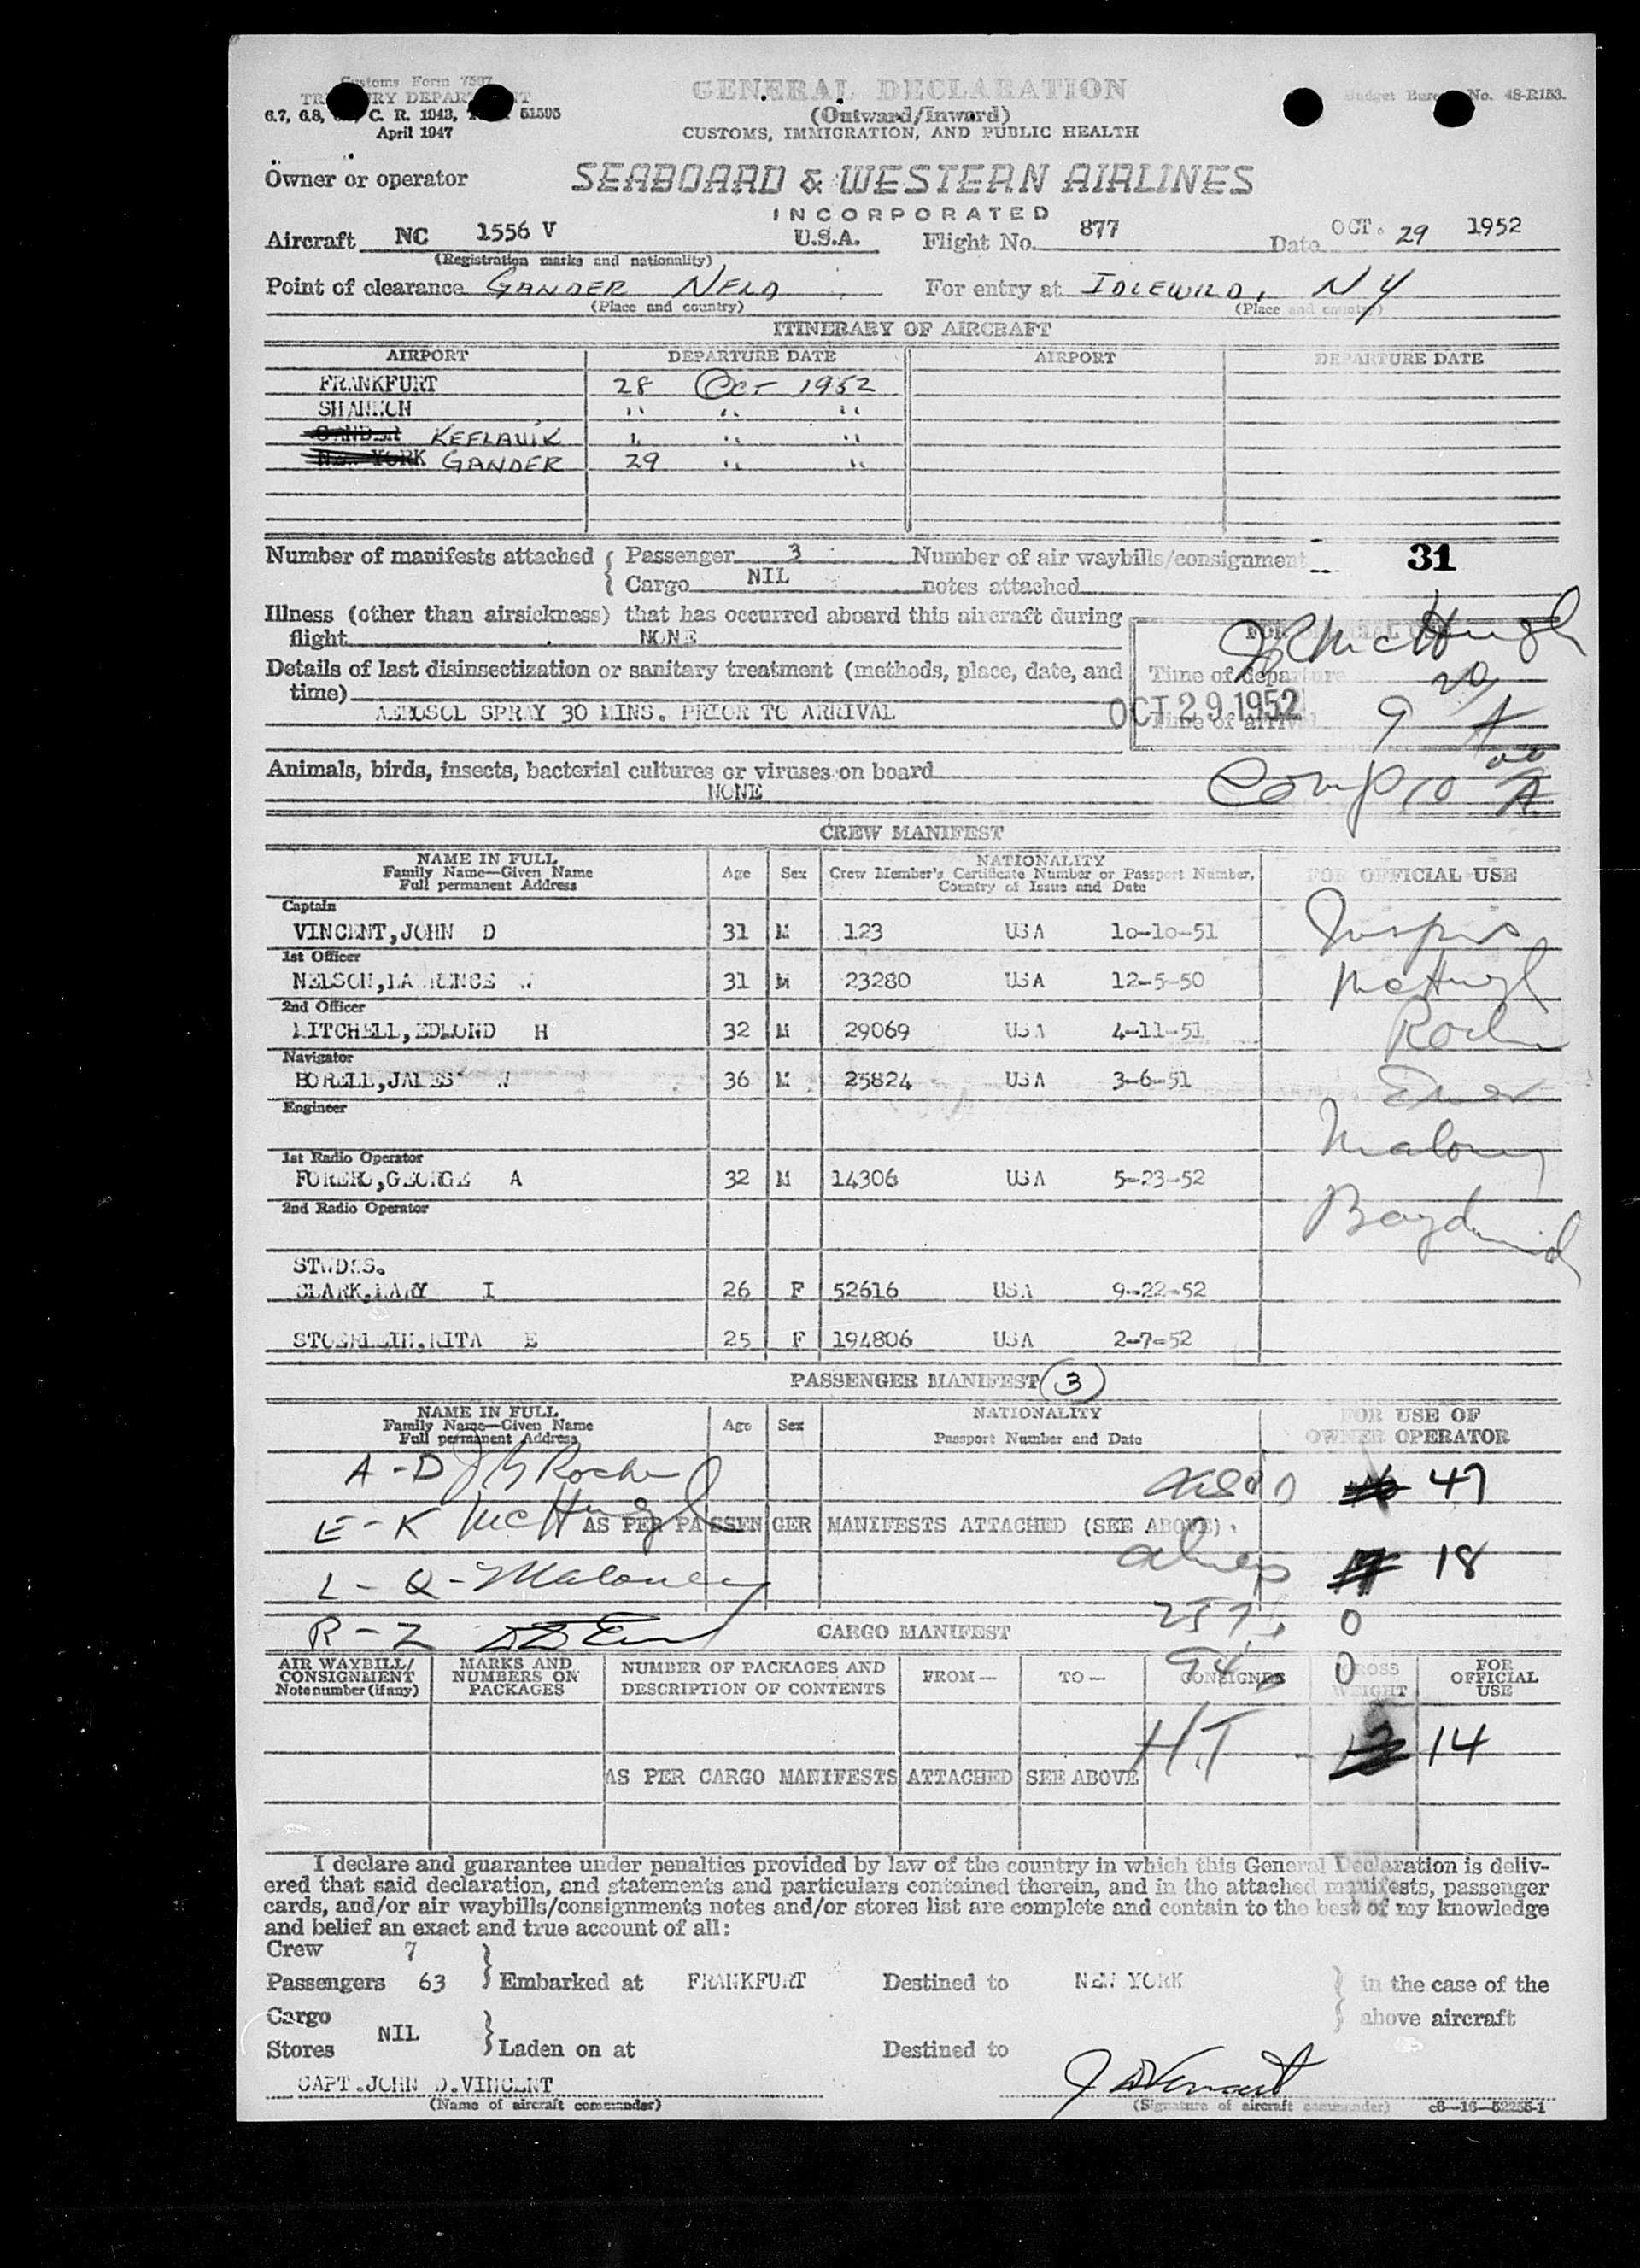 Customs Form 7507
TREASURY DEPARTMENT
6.7, 6.8, C. R. 1943, 51595
April 1947
GENERAL DECLARATION
(Outward/Inward)
CUSTOMS, IMMIGRATION, AND PUBLIC HEALTH
Budget Bureau No. 48-R153.
Owner or operator SEABOARD & WESTERN AIRLINES
INCORPORATED
Aircraft NC 1556 V U.S.A. Flight No. 877 Date OCT. 29 1952
(Registration marks and nationality)
Point of clearance GANDER NFLD For entry at IDLEWILD, NY
(Place and country) (Place and country)
ITINERARY OF AIRCRAFT
AIRPORT DEPARTURE DATE AIRPORT DEPARTURE DATE
FRANKFURT 28 Oct 1952
SHANNON " " "
GANDER KEFLAVIK " " "
NEW YORK GANDER 29 " "
Number of manifests attached { Passenger 3 Number of air waybills/consignment 31
Cargo NIL notes attached
Illness (other than airsickness) that has occurred aboard this aircraft during
flight NONE
FOR OFFICIAL USE
JR McHugh
Details of last disinsectization or sanitary treatment (methods, place, date, and
time)
Time of departure
AEROSOL SPRAY 30 MINS. PRIOR TO ARRIVAL
OCT 29 1952
Time of arrival 9 20 A
Animals, birds, insects, bacterial cultures or viruses on board
NONE
Comp 10 00 A
CREW MANIFEST
NAME IN FULL
Family Name—Given Name
Full permanent Address
Age Sex
NATIONALITY
Crew Member's Certificate Number or Passport Number,
Country of Issue and Date
FOR OFFICIAL USE
Captain
VINCENT,JOHN D 31 M 123 USA 10-10-51
Insprs
1st Officer
NELSON,LAWRENCE W 31 M 23280 USA 12-5-50
McHugh
2nd Officer
MITCHELL,EDMOND H 32 M 29069 USA 4-11-51
Roche
Navigator
BORELL,JAMES W 36 M 25824 USA 3-6-51
Engineer
Maloney
1st Radio Operator
FORERO,GEORGE A 32 M 14306 USA 5-23-52
2nd Radio Operator
STWDES.
CLARK,MARY I 26 F 52616 USA 9-22-52
STOERLEIN,RITA E 25 F 194806 USA 2-7-52
PASSENGER MANIFEST 3
NAME IN FULL
Family Name—Given Name
Full permanent Address
Age Sex
NATIONALITY
Passport Number and Date
FOR USE OF
OWNER OPERATOR
A - D Roche 47
E - K McHugh
AS PER PASSENGER MANIFESTS ATTACHED (SEE ABOVE)
18
L - Q - Maloney
0
R - Z
CARGO MANIFEST
AIR WAYBILL/
CONSIGNMENT
Note number (if any)
MARKS AND
NUMBERS ON
PACKAGES
NUMBER OF PACKAGES AND
DESCRIPTION OF CONTENTS
FROM—
TO—
CONSIGNEE
GROSS
WEIGHT
FOR
OFFICIAL
USE
0
H.T 14
AS PER CARGO MANIFESTS ATTACHED SEE ABOVE
I declare and guarantee under penalties provided by law of the country in which this General Declaration is deliv-
ered that said declaration, and statements and particulars contained therein, and in the attached manifests, passenger
cards, and/or air waybills/consignments notes and/or stores list are complete and contain to the best of my knowledge
and belief an exact and true account of all:
Crew 7
Passengers 63 } Embarked at FRANKFURT Destined to NEW YORK } in the case of the
Cargo above aircraft
NIL
Stores } Laden on at Destined to
CAPT.JOHN D.VINCENT J D Vincent
(Name of aircraft commander) (Signature of aircraft commander) c6—16—52255-1